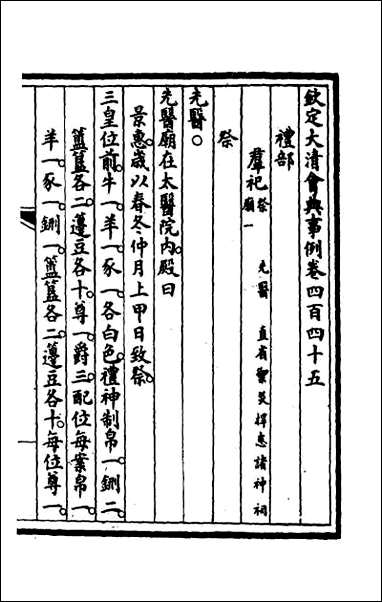 欽定大清會典事例卷四百四十五
禮部
羣祀 祭先醫廟一 直省禦災捍患諸神祠
祭
先醫○
先醫廟在太醫院內殿曰
景惠歲以春冬仲月上甲日致祭
三皇位前牛一羊一豕一各白色禮神制帛一鉶二
簠簋各二籩豆各十尊一爵三配位每案帛一
羊一豕一鉶一簠簋各二籩豆各十每位尊一